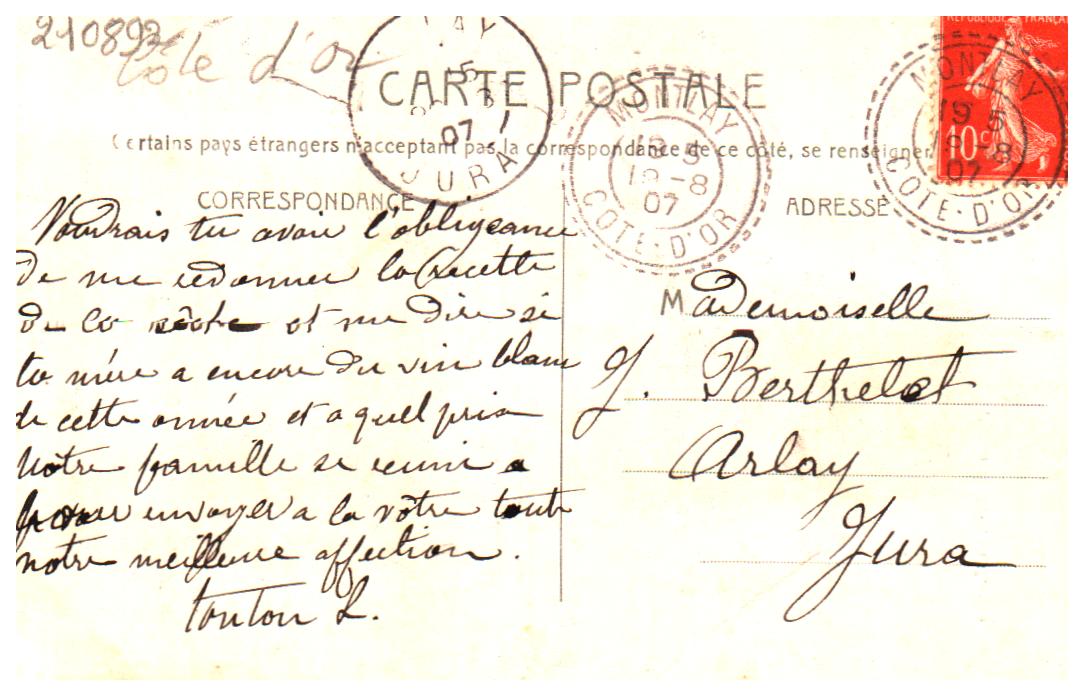 210893
Côte d'or
CARTE POSTALE
Certains pays étrangers n'acceptant pas la correspondance de ce côté, se renseigner
RÉPUBLIQUE FRANÇAI
10 c
LAY
5
07
JURA
MONTLAY
19 5
19-8
07
COTE-D'OR
MONTLAY
19 5
19-8
07
COTE-D'OR
CORRESPONDANCE
Voudrais tu avoir l'obligeance
de me redonner la recette
de la et me dire si
ta mère a encore du vin blanc
de cette année et a quel prix
Notre famille se reuni a
pour envoyer a la vôtre toute
notre meilleure affection.
tonton L.
ADRESSE
Mademoiselle
J. Berthelet
Arlay
Jura